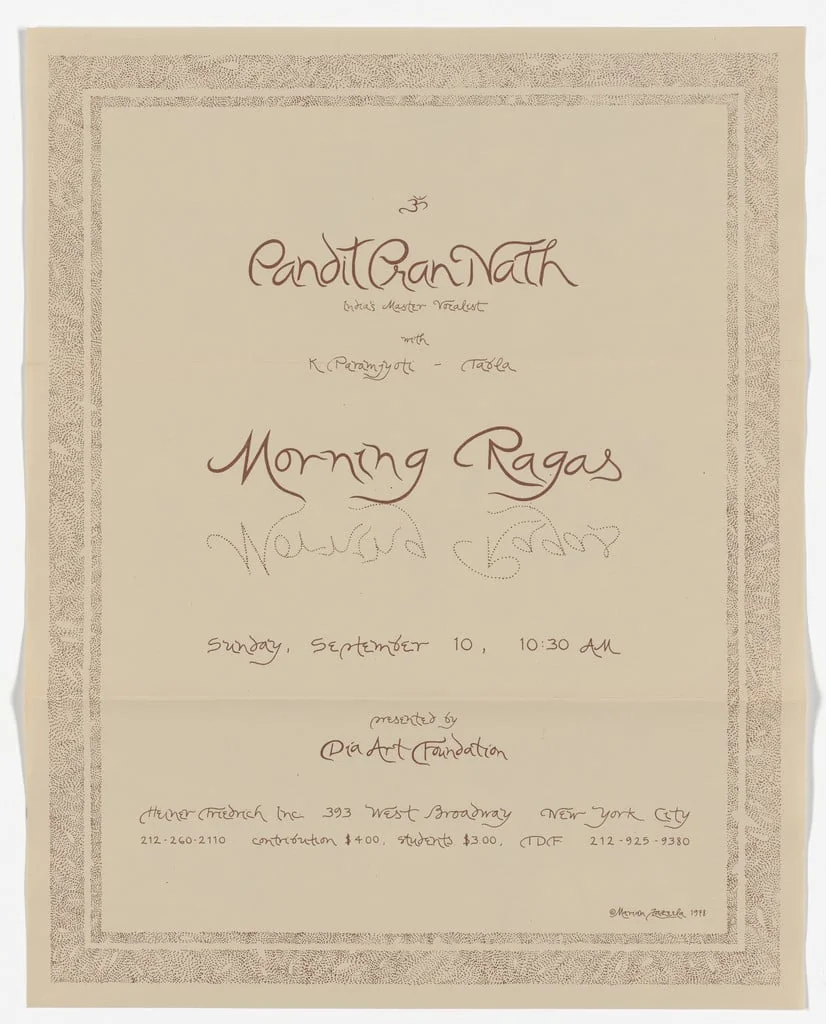 ॐ
Pandit Pran Nath
India's Master Vocalist
with
K. Paramjyoti - Tabla
Morning Ragas
Morning Ragas
Sunday, September 10, 10:30 AM
presented by
Dia Art Foundation
Heiner Friedrich Inc. 393 West Broadway New York City
212-260-2110 contribution $4.00, students $3.00, TDF 212-925-9380
© Marian Zazeela 1978